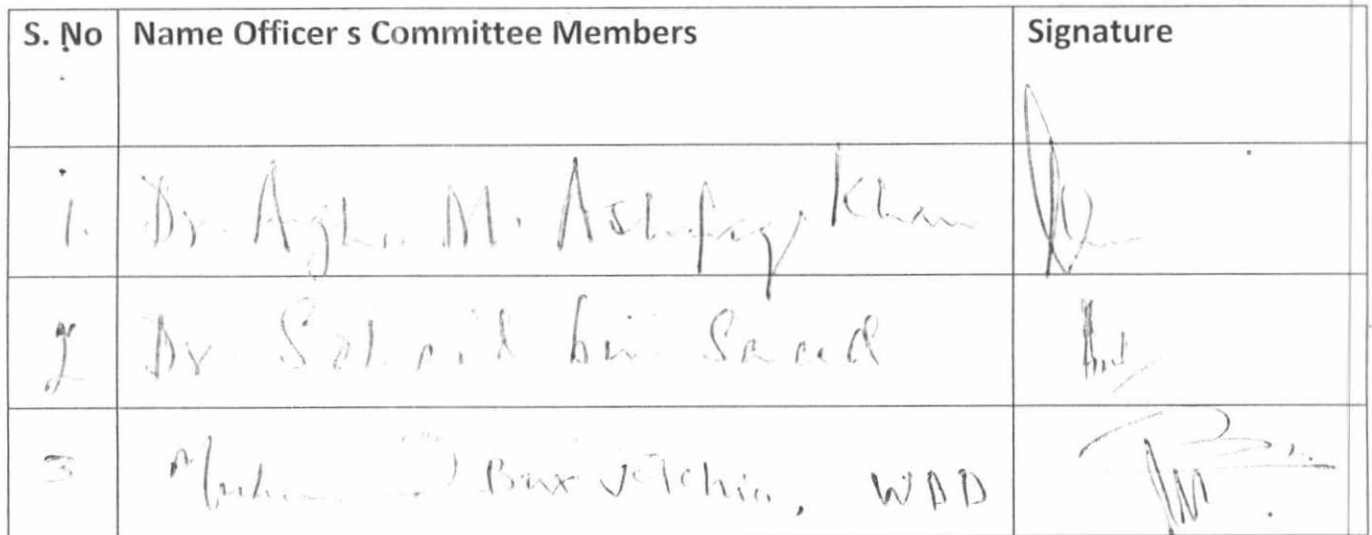 S. No Name Officer s Committee Members Signature
1. Dr. Agha M. Ashfaq Khan
2 Dr. Sohail bin Saeed
3 Bux WDD